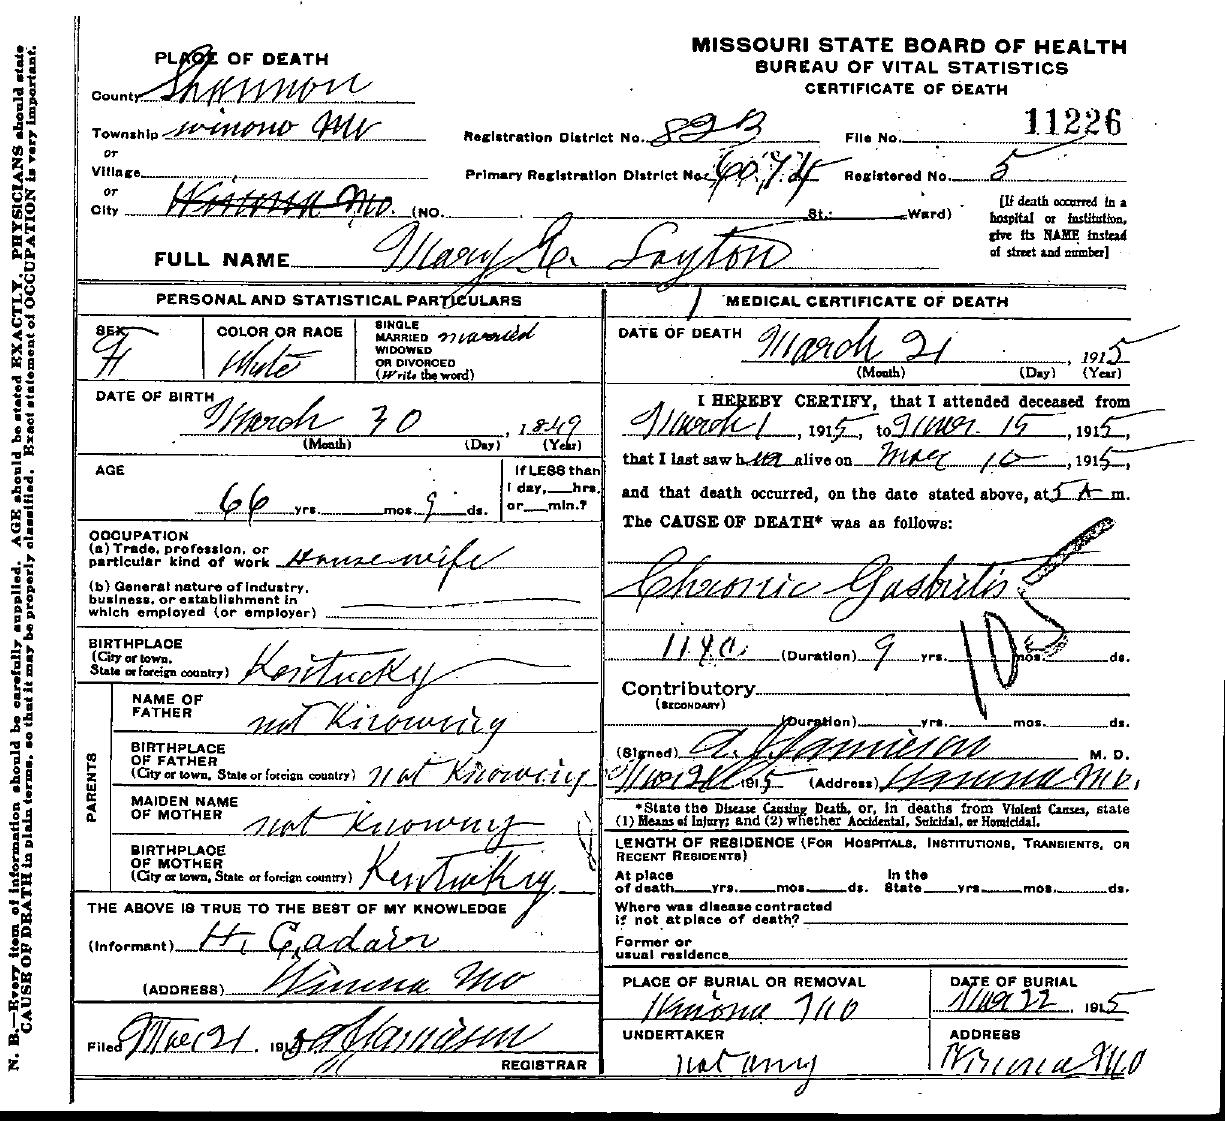 MISSOURI STATE BOARD OF HEALTH
BUREAU OF VITAL STATISTICS
CERTIFICATE OF DEATH
PLACE OF DEATH
County Shannon
Township winono Mo
or
Village
or
City Winona Mo. (NO. St.; Ward)
Registration District No. 82B
File No. 11226
Primary Registration District No. 6074
Registered No. 5
[If death occurred in a
hospital or institution,
give its NAME instead
of street and number]
FULL NAME Mary E. Layton
PERSONAL AND STATISTICAL PARTICULARS
SEX
F
COLOR OR RACE
White
SINGLE
MARRIED married
WIDOWED
OR DIVORCED
(Write the word)
DATE OF BIRTH
March 30, 1849
(Month) (Day) (Year)
AGE
66 yrs. mos. 9 ds.
If LESS than
1 day, hrs.
or min.?
OCCUPATION
(a) Trade, profession, or
particular kind of work Housewife
(b) General nature of industry,
business, or establishment in
which employed (or employer)
BIRTHPLACE
(City or town,
State or foreign country) Kentucky
PARENTS
NAME OF
FATHER not Knowing
BIRTHPLACE
OF FATHER
(City or town, State or foreign country) not Knowing
MAIDEN NAME
OF MOTHER not Knowing
BIRTHPLACE
OF MOTHER
(City or town, State or foreign country) Kentucky
THE ABOVE IS TRUE TO THE BEST OF MY KNOWLEDGE
(Informant) H.
(ADDRESS) Winona Mo
Filed Mar 21, 1915
REGISTRAR
MEDICAL CERTIFICATE OF DEATH
DATE OF DEATH March 21, 1915
(Month) (Day) (Year)
I HEREBY CERTIFY, that I attended deceased from
March 1, 1915, to 15, 1915,
that I last saw her alive on Mar 10, 1915,
and that death occurred, on the date stated above, at 5 A m.
The CAUSE OF DEATH* was as follows:
Chronic Gastritis
(Duration) 9 yrs. mos. ds.
Contributory
(SECONDARY)
(Duration) yrs. mos. ds.
(Signed) M. D.
1915 (Address) Winona Mo.
*State the Disease Causing Death, or, in deaths from Violent Causes, state
(1) Means of Injury; and (2) whether Accidental, Suicidal, or Homicidal.
LENGTH OF RESIDENCE (FOR HOSPITALS, INSTITUTIONS, TRANSIENTS, OR
RECENT RESIDENTS)
At place In the
of death yrs. mos. ds. State yrs. mos. ds.
Where was disease contracted
if not at place of death?
Former or
usual residence
PLACE OF BURIAL OR REMOVAL
Winona Mo
DATE OF BURIAL
Mar 22, 1915
UNDERTAKER
not any
ADDRESS
Winona Mo
N. B.—Every item of information should be carefully supplied. AGE should be stated EXACTLY. PHYSICIANS should state
CAUSE OF DEATH in plain terms, so that it may be properly classified. Exact statement of OCCUPATION is very important.